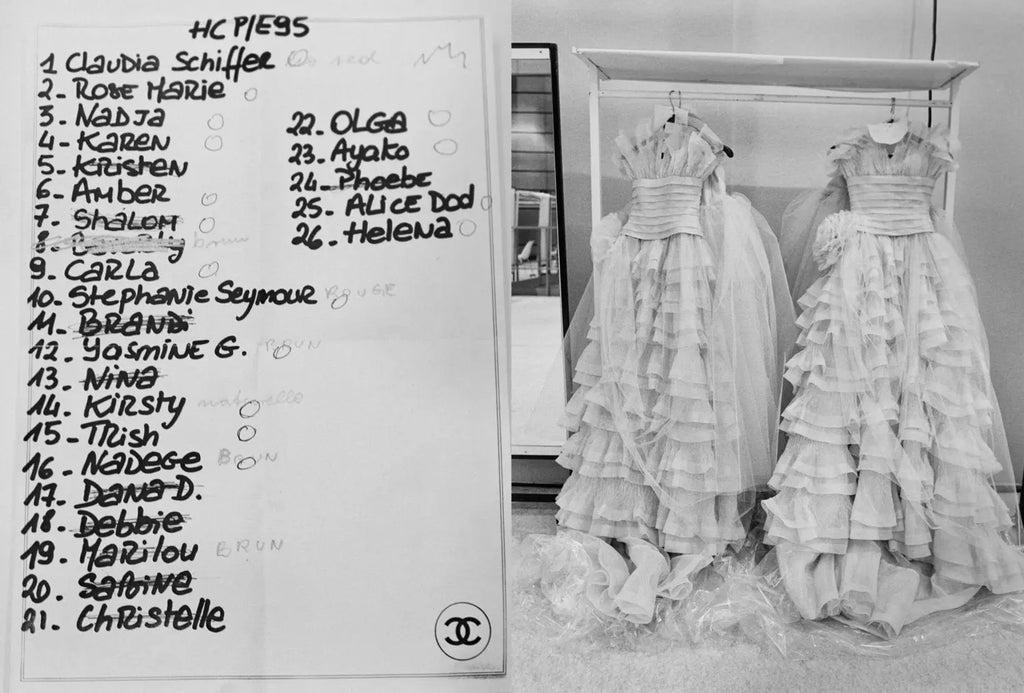 HC P/E95
1 Claudia Schiffer red
2- ROSE MARIE
3- NADJA
4- KAREN
5- KRISTEN
6- AMBER
7- SHALOM
8- brun
9- CARLA
10- Stephanie Seymour ROUGE
11- BRANDI
12- YASMINE G. BRUN
13- NINA
14- KIRSTY naturelle
15- TRISH
16- NADEGE BRUN
17- DANA D.
18- Debbie
19- MARILOU BRUN
20- SABINE
21- CHRISTELLE
22- OLGA
23- Ayako
24- Phoebe
25- ALICE DOD
26- HELENA